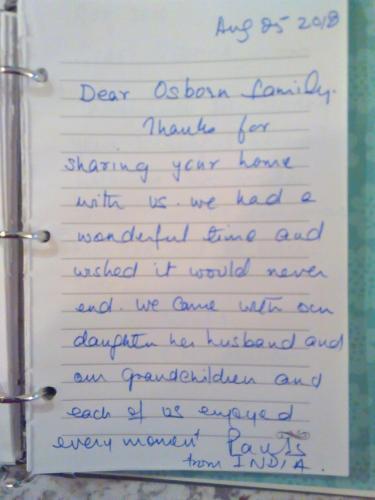 Aug 25 2018
Dear Osborn family.
Thanks for
sharing your home
with us. we had a
wonderful time and
wished it would never
end. we came with our
daughter her husband and
our Grandchildren and
each of us enjoyed
every moment
from INDIA.